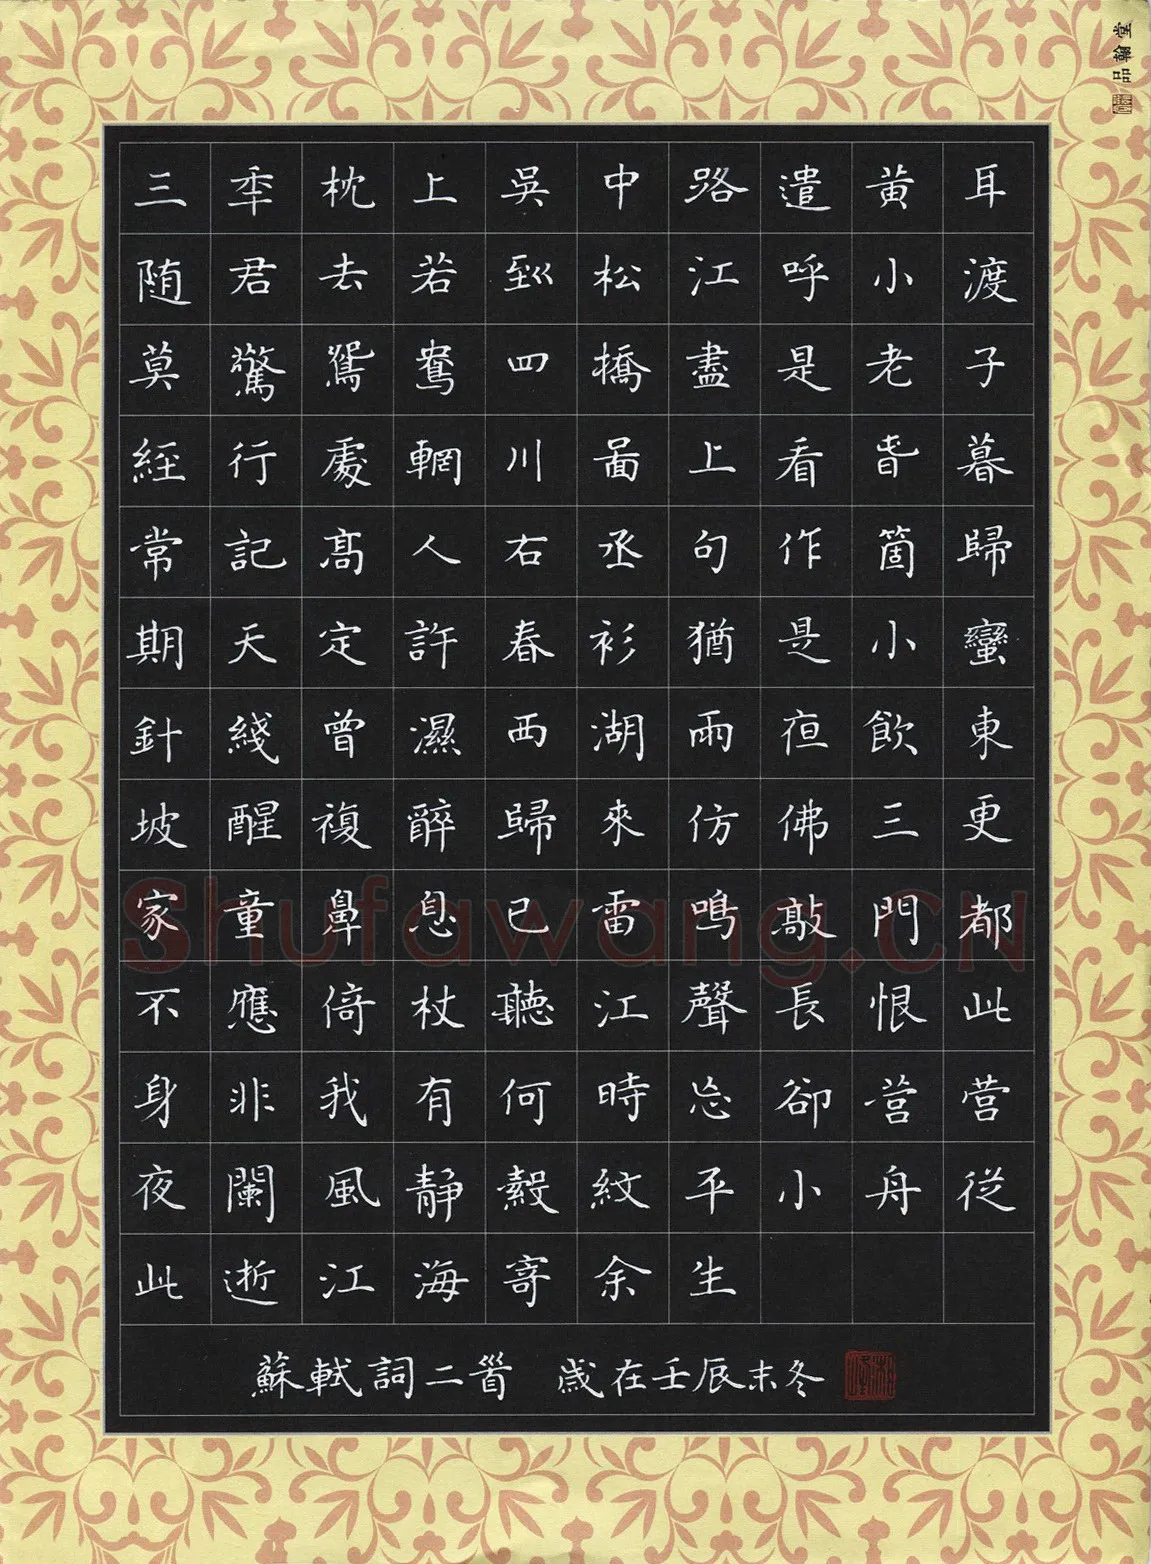 三秊枕上吳中路遣黃耳
随君去若到松江呼小渡
莫驚鴛鴦四橋盡是老子
經行處輞川啚上看旾暮
常記高人右丞句作箇歸
期天定許春衫猶是小蠻
針綫曾濕西湖雨亱飲東
坡醒複醉歸來仿佛三更
家童鼻息已雷鳴敲門都
不應倚杖聽江聲長恨此
身非我有何時忘卻营营
夜闌風靜縠紋平小舟從
此逝江海寄余生
蘇軾詞二首 歲在壬辰末冬
Shufawang.CN